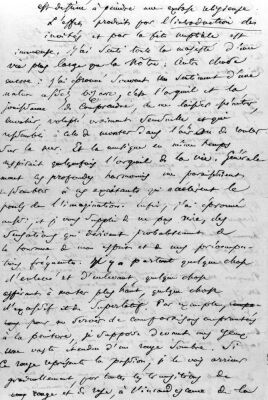 est destiné à peindre une extase religieuse.
L'effet produit par l'introduction des
invités et par la fête nuptiale est
immense; j'ai senti toute la majesté d'une
vie plus large que la nôtre. Autre chose
encore: j'ai éprouvé souvent un sentiment d'une
nature assez bizarre, c'est l'orgueil et la
jouissance de comprendre, de me laisser pénétrer,
envahir, volupté vraiment sensuelle et qui
ressemble à celle de monter dans l'air ou de rouler
sur la mer. Et la musique en même temps
respirait quelquefois l'orgueil de la vie. Générale-
ment ces profondes harmonies me paraissaient
ressembler à ces excitants qui accélèrent le
pouls de l'imagination. Enfin, j'ai éprouvé
aussi, et je vous supplie de ne pas rire, des
sensations qui dérivent probablement de
la tournure de mon esprit et de mes préoccupa-
tions fréquentes. Il y a partout quelque chose
d'enlevé et d'enlevant, quelque chose
aspirant à monter plus haut, quelque chose
d'excessif et de superlatif. Par exemple,
pour me servir de comparaisons empruntées
à la peinture, je suppose devant mes yeux
une vaste étendue d'un rouge sombre. Si
ce rouge représente la passion, je le vois arriver
graduellement, par toutes les transitions de
rouge et de rose, à l'incandescence de la